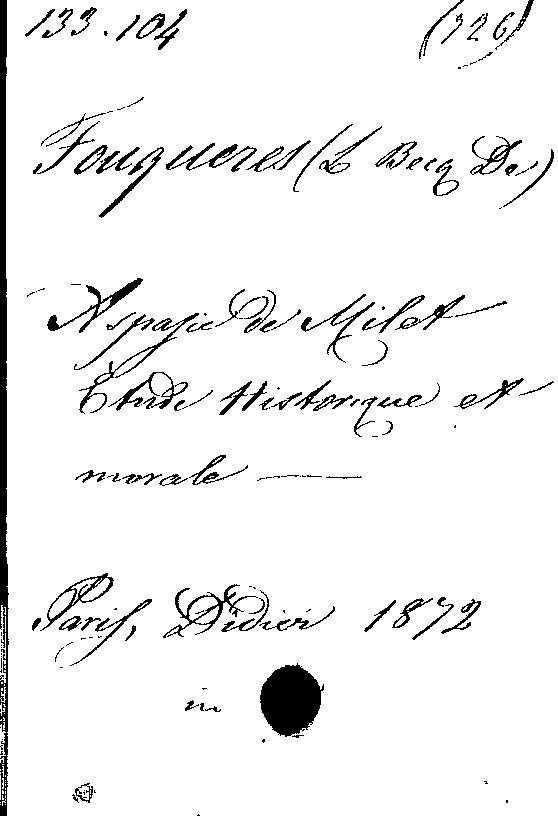 133.104 (726)
Fouqueres (L Becq De)
Aspasie de Milet
Étude Historique et
morale —
Paris, Didier 1872
in